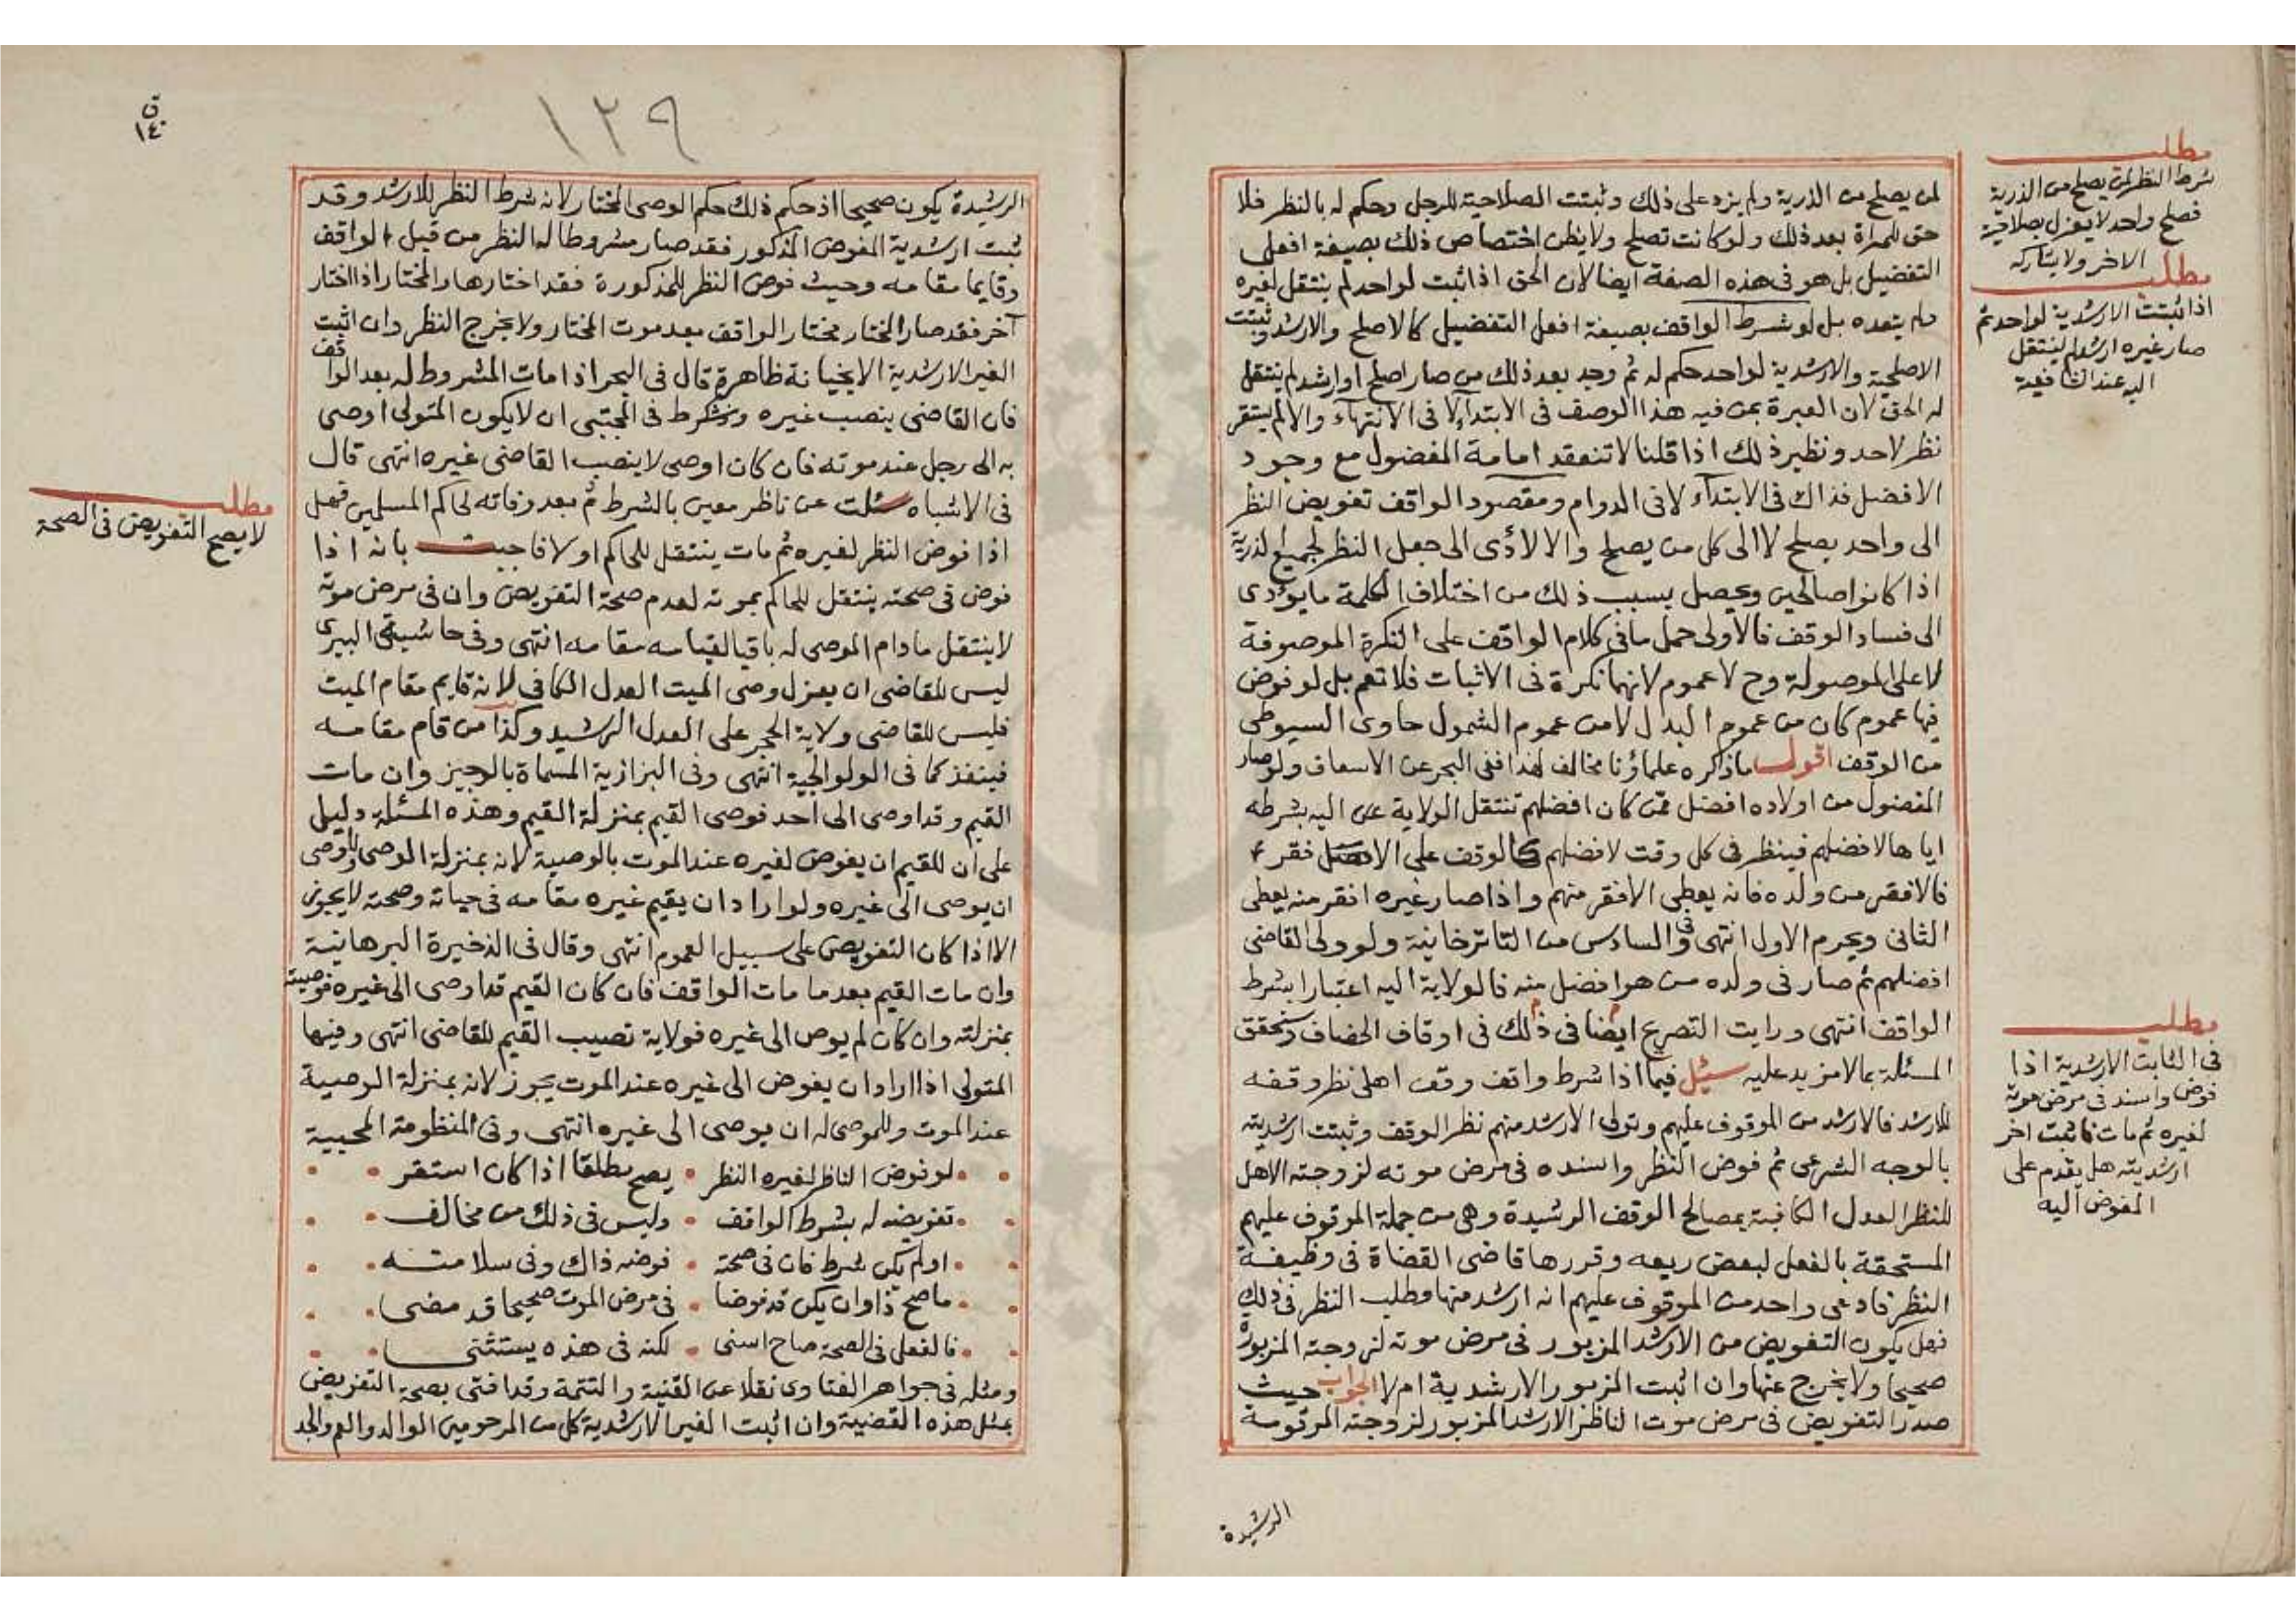 مطلب
شرط النظر لمن يصلح من الذرية
فصلح واحد لا يعزل بصلاحية
الاخر ولا يشاركه
مطلب
اذا ثبتت الارشدية لواحد ثم
صار غيره ارشد لم ينتقل
اليه عند الشافعية
لمن يصلح من الذرية ولم يزد على ذلك وثبتت الصلاحية للرجل وحكم له بالنظر فلا
حق للمرأة بعد ذلك ولو كانت تصلح ولا يظن اختصاص ذلك بصيغة افعل
التفضيل بل هو في هذه الصفة ايضا لان الحق اذا ثبت لواحد لم ينتقل لغيره
ولم يتعده بل لو شرط الواقف بصيغة افعل التفضيل كالاصلح والارشد وثبتت
الاصلحية والارشدية لواحد حكم له ثم وجد بعد ذلك من صار اصلح او ارشد لم ينتقل
له الحق لان العبرة بمن فيه هذا الوصف في الابتداء لا في الانتهاء والا لم يستقر
نظر لاحد ونظير ذلك اذا قلنا لا تنعقد امامة المفضول مع وجود
الافضل فذاك في الابتداء لا في الدوام ومقصود الواقف تفويض النظر
الى واحد يصلح لا الى كل من يصلح والا لأدى الى جعل النظر لجميع الذرية
اذا كانوا صالحين ويحصل بسبب ذلك من اختلاف الكلمة ما يؤدى
الى فساد الوقف فالاولى حمل ما في كلام الواقف على النكرة الموصوفة
لا على الموصولة وح لا عموم لانها نكرة في الاثبات فلا تعم بل لو فرض
فيها عموم كان من عموم البدل لا من عموم الشمول حاوى السيوطى
من الوقف اقول ما ذكره علماؤنا مخالف لهذا ففي البحر عن الاسعاف ولو صار
المفضول من اولاده افضل ممن كان افضلهم تنتقل الولاية عن اليه بشرطه
اياها لافضلهم فينظر في كل وقت لافضلهم كالوقف على الافقر
فالافقر من ولده فانه يعطى الافقر منهم واذا صار غيره افقر منه يعطى
الثاني ويحرم الاول انتهى وفي السادس من التاترخانية ولو ولى القاضى
افضلهم ثم صار في ولده من هو افضل منه فالولاية اليه اعتبارا بشرط
الواقف انتهى ورايت التصريح ايضا في ذلك في اوقاف الخصاف وستحقق
المسئلة بما لا مزيد عليه سئل فيما اذا شرط واقف وقف اهلى نظر وقفه
للارشد فالارشد من الموقوف عليهم وتولى الارشد منهم نظر الوقف وثبتت ارشديته
بالوجه الشرعى ثم فوض النظر واسنده في مرض موته لزوجته الاهل
للنظر العدل الكافية بمصالح الوقف الرشيدة وهى من جملة الموقوف عليهم
المستحقة بالفعل لبعض ريعه وقررها قاضى القضاة في وظيفة
النظر فادعى واحد من الموقوف عليهم انه ارشد منها وطلب النظر في ذلك
فهل يكون التفويض من الارشد المزبور في مرض موته لزوجته المزبورة
صحيحا ولا يخرج عنها وان اثبت المزبور الارشدية ام لا الجواب حيث
صدر التفويض في مرض موت الناظر الارشد المزبور لزوجته المرقومة
مطلب
في الثابت الارشدية اذا
فوض واسند في مرض موته
لغيره ثم مات فاثبت اخر
ارشديته هل يقدم على
المفوض اليه
الرشيدة
ق
١٤٠
١٣٩
الرشيدة يكون صحيحا اذ حكم ذلك حكم الوصى المختار لانه شرط النظر للارشد وقد
ثبت ارشدية المفوض المذكور فقد صار مشروطا له النظر من قبل الواقف
وقايما مقامه وحيث فوض النظر للمذكورة فقد اختارها والمختار اذا اختار
آخر فقد صار المختار مختار الواقف بعد موت المختار ولا يخرج النظر وان اثبت
الغير الارشدية الا بخيانة ظاهرة قال في البحر اذا مات المشروط له بعد الواقف
فان القاضى ينصب غيره وشرط في المجتبى ان لا يكون المتولى اوصى
به الى رجل عند موته فان كان اوصى لا ينصب القاضى غيره انتهى قال
في الاشباه سئلت عن ناظر معين بالشرط ثم بعد وفاته لحاكم المسلمين فهل
اذا فوض النظر لغيره ثم مات ينتقل للحاكم او لا فاجبت بانه اذا
فوض في صحته ينتقل للحاكم بموته لعدم صحة التفويض وان في مرض موته
لا ينتقل ما دام الموصى له باقيا لقيامه مقامه انتهى وفي حاشيته البيرى
ليس للقاضى ان يعزل وصى الميت العدل الكافى لانه قايم مقام الميت
فليس للقاضى ولاية الحجر على العدل الرشيد وكذا من قام مقامه
فينفذ كما في الولوالجية انتهى وفي البزازية المسماة بالوجيز وان مات
القيم وقد اوصى الى احد فوصى القيم بمنزلة القيم وهذه المسئلة دليل
على ان للقيم ان يفوض لغيره عند الموت بالوصية لانه بمنزلة الوصى وللوصى
ان يوصى الى غيره ولو اراد ان يقيم غيره مقامه في حياته وصحته لا يجوز
الا اذا كان التفويض على سبيل العموم انتهى وقال في الذخيرة البرهانية
وان مات القيم بعد ما مات الواقف فان كان القيم قد اوصى الى غيره فوصيته
بمنزلته وان كان لم يوص الى غيره فولاية تصيب القيم للقاضى انتهى وفيها
المتولى اذا اراد ان يفوض الى غيره عند الموت يجوز لانه بمنزلة الوصية
عند الموت وللموصى له ان يوصى الى غيره انتهى وفي المنظومة المحبية
لو فوض الناظر لغيره النظر • يصح مطلقا اذا كان استقر
تفويضه له بشرط الواقف • وليس في ذلك من مخالف
او لم يكن شرط فان في صحة • فوضه ذاك وفي سلامته
ما صح ذا وان يكن قد فوضا • في مرض الموت صحيحا قد مضى
فالفعل في الصحة صاح اسنى • لكنه في هذه يستثنى
ومثله في جواهر الفتاوى نقلا عن القنية والتتمة وقد افتى بصحة التفويض
بمثل هذه القضية وان اثبت الغير الارشدية كل من المرحومين الوالد والعم والجد
مطلب
لا يصح التفويض في الصحة